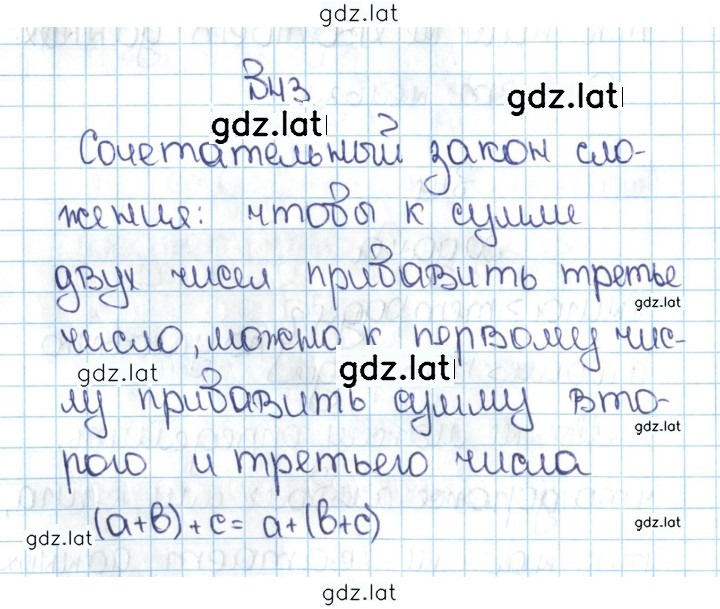 gdz.lat
В43
gdz.lat
gdz.lat
Сочетательный закон сло-
жения: чтобы к сумме
двух чисел прибавить третье
gdz.lat
число, можно к первому чис-
gdz.lat
gdz.lat
лу прибавить сумму вто-
gdz.lat
рого и третьего числа
(a+b)+c= a+(b+c)
gdz.lat
gdz.lat
gdz.lat